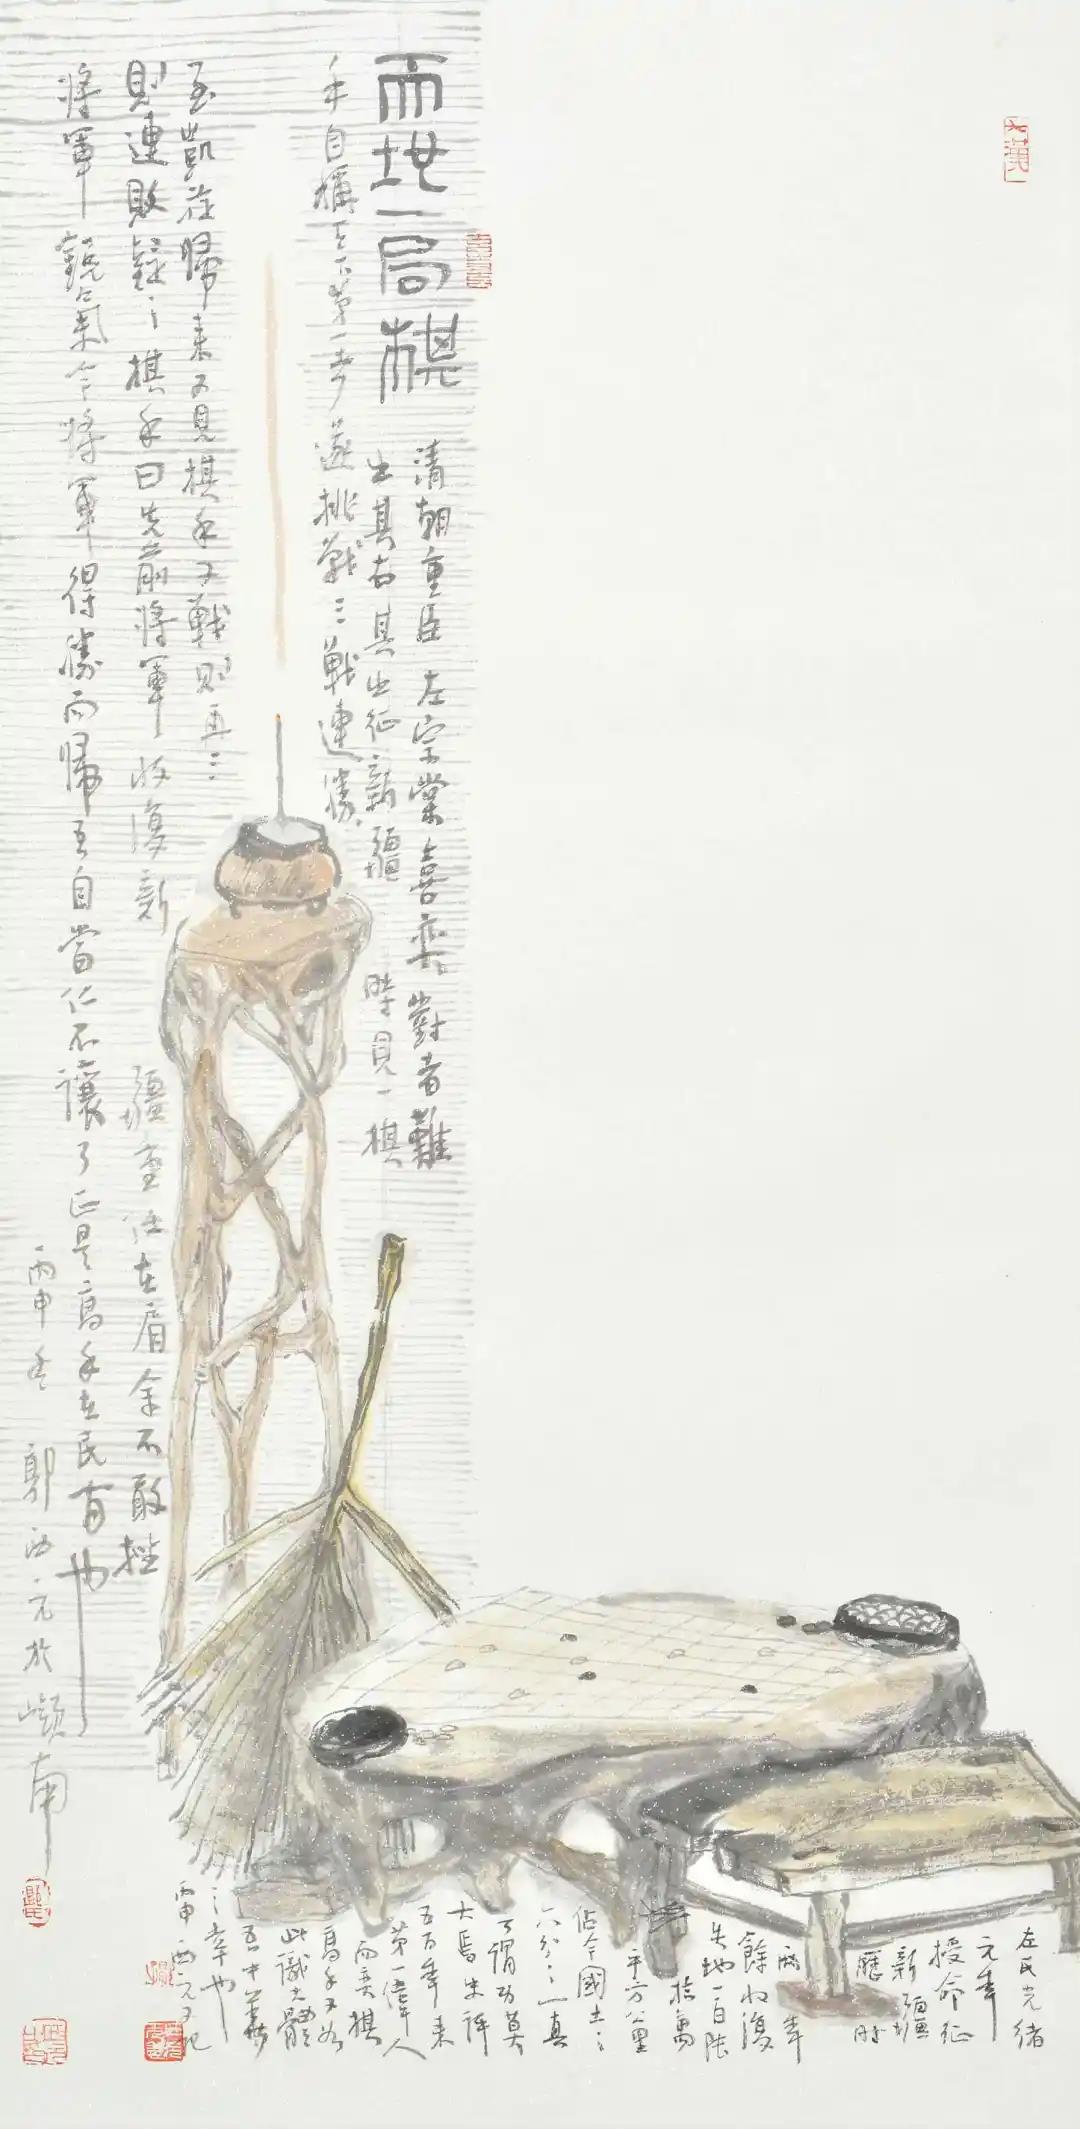 天地一局棋
清朝重臣左宗棠喜弈對者難
出其右其出征新疆時見一棋
手自稱天下第一者遂挑戰三戰連勝
至凱旋歸來又見棋手又戰則再三
則連敗疑之棋手曰先前將軍收復新
疆重任在肩余不敢挫
將軍銳氣今將軍得勝而歸吾自當仁不讓了正是高手在民間也
丙申冬郭西元於嶺南
左氏光緒
元年
授命征
新疆
歷時
兩年
餘收復
失地一百陸
拾萬
平方公里
佔今國土之
六分之一真
可謂功莫
大焉史評
五百年來
第一偉人
而弈棋
高手又如
此識大體
吾中華
之幸也
丙申西元又記